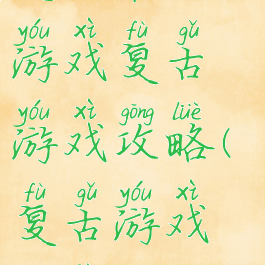 yóu xì fù gǔ
游戏复古
yóu xì gōng lüè
游戏攻略(
fù gǔ yóu xì
复古游戏